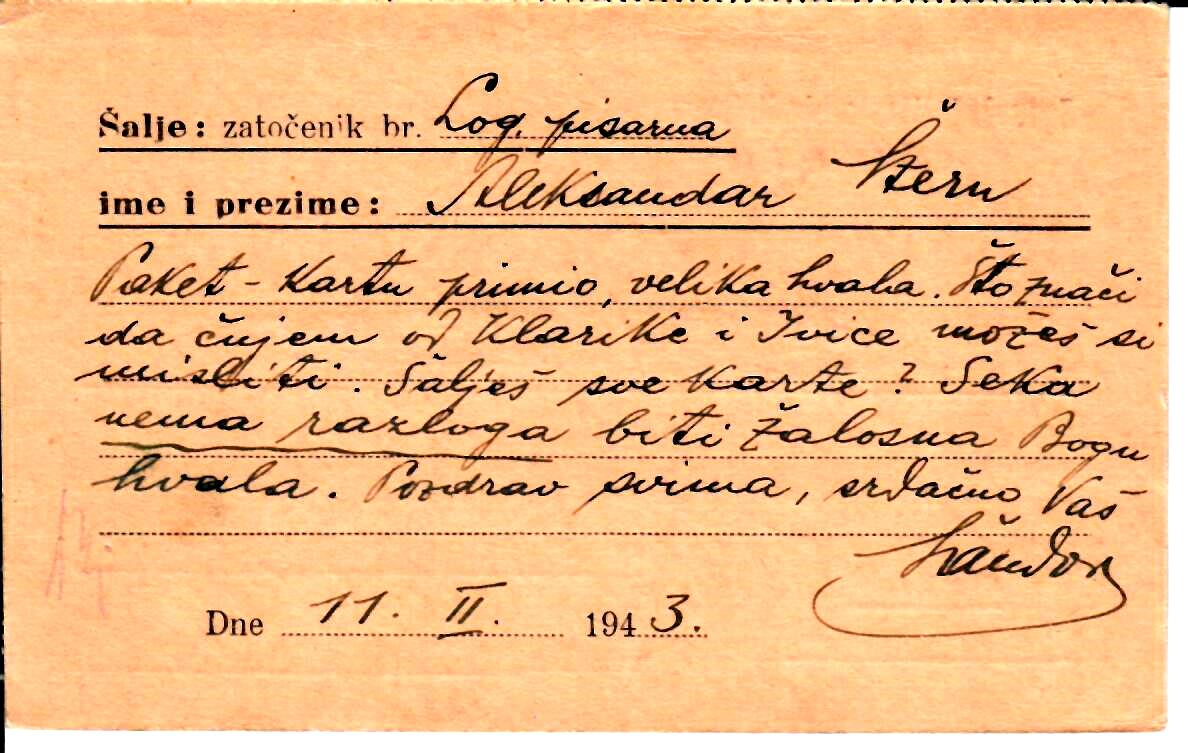 Šalje: zatočenik br. Log. pisarna
ime i prezime: Aleksandar Štern
Paket - Kartu primio, velika hvala. Što znači
da čujem od Klarike i Ivice možeš si
misliti. Šalješ sve Karte? Seka
nema razloga biti žalosna Bogu
hvala. Pozdrav svima, srdačno Vaš
Šandor
Dne 11. II. 1943.